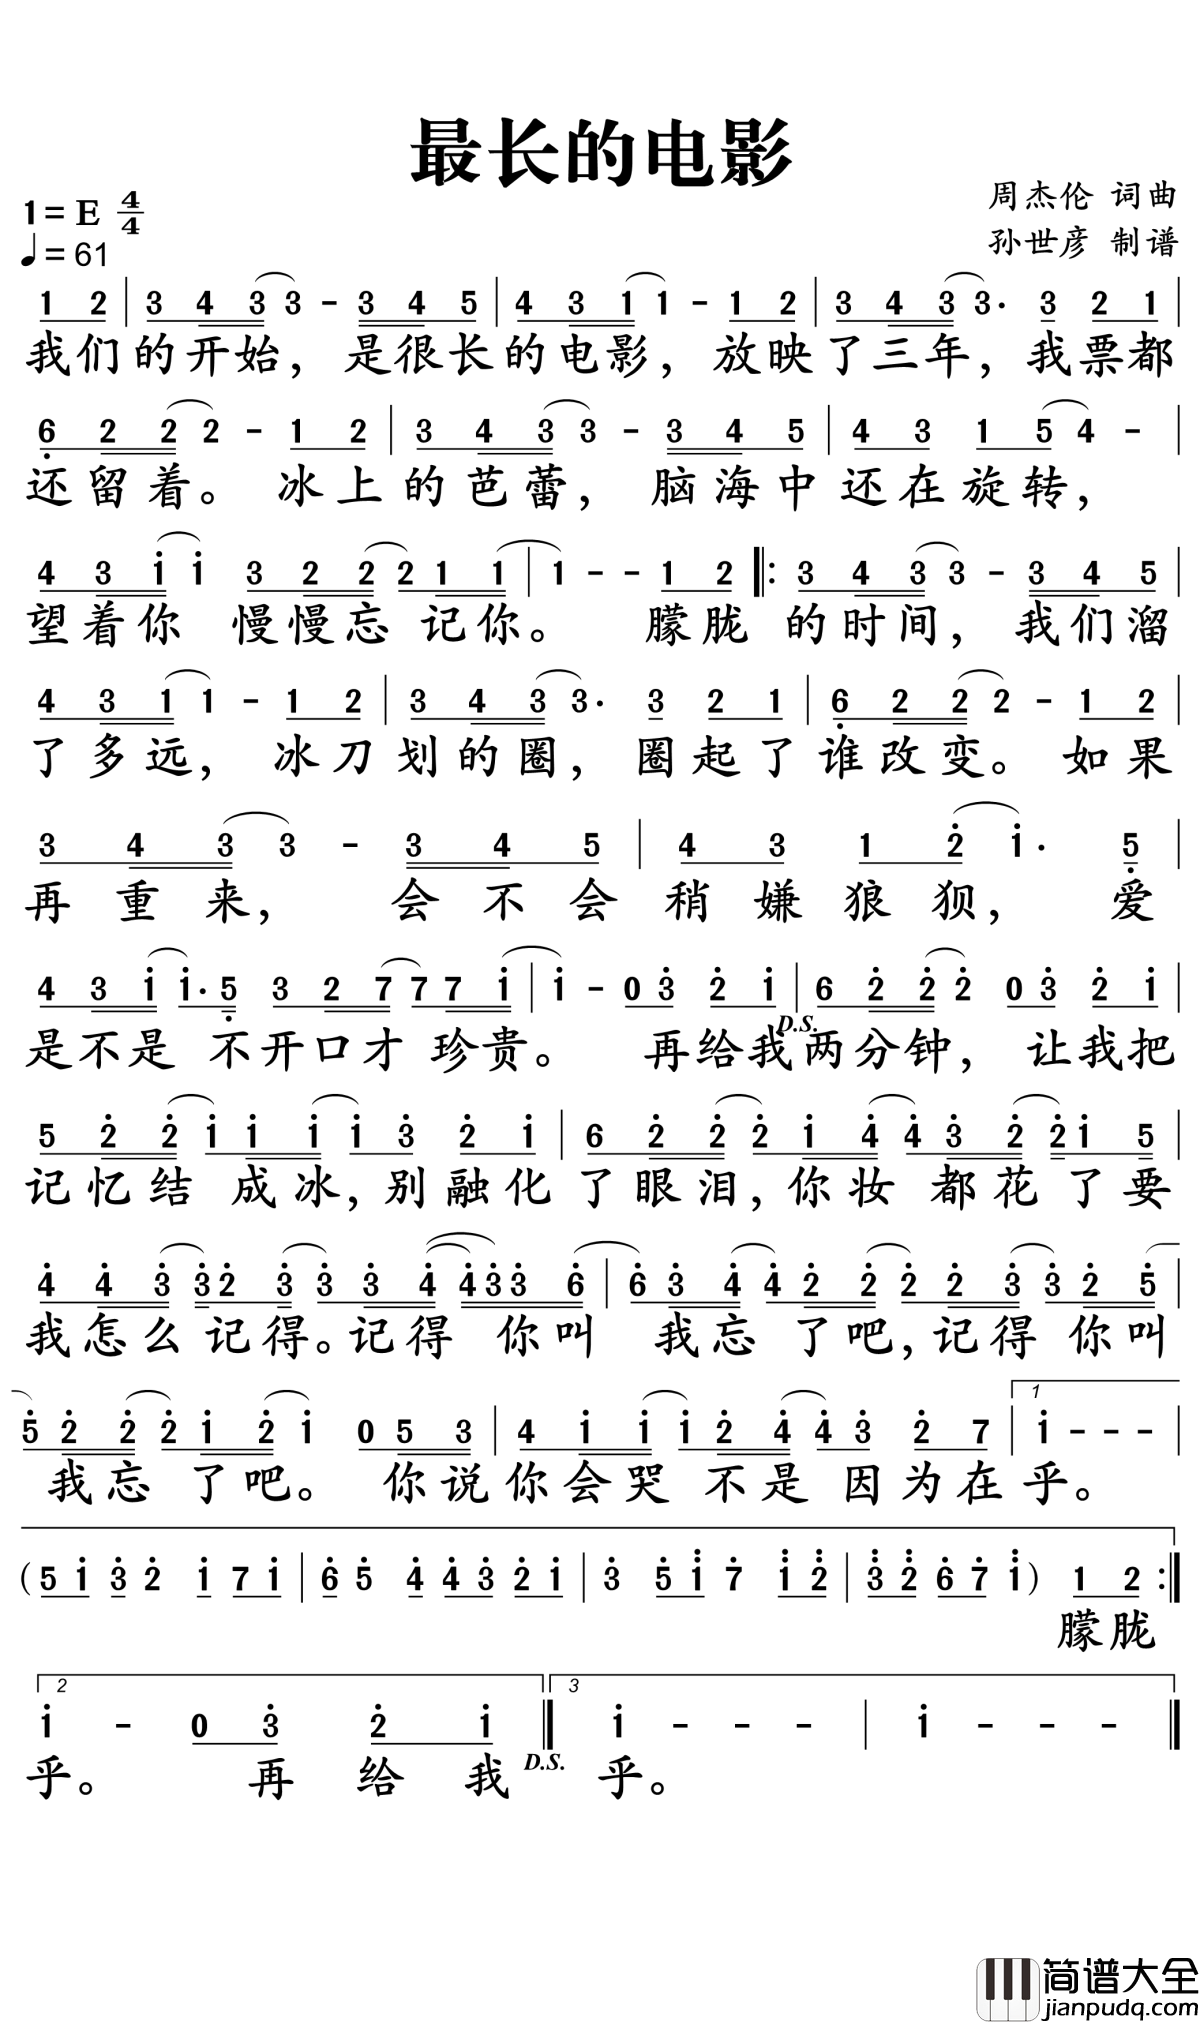 最长的电影
周杰伦 词曲
1= E 4/4
孙世彦 制谱
♩= 61
1 2 | 3 4 3 3 - 3 4 5 | 4 3 1 1 - 1 2 | 3 4 3 3· 3 2 1 |
我们的开始，是很长的电影，放映了三年，我票都
6 2 2 2 - 1 2 | 3 4 3 3 - 3 4 5 | 4 3 1 5 4 - |
还留着。冰上的芭蕾，脑海中还在旋转，
4 3 1 1 3 2 2 2 1 1 | 1 - - 1 2 ‖: 3 4 3 3 - 3 4 5 |
望着你 慢慢忘 记你。 朦胧 的时间，我们溜
4 3 1 1 - 1 2 | 3 4 3 3· 3 2 1 | 6 2 2 2 - 1 2 |
了多远，冰刀划的圈，圈起了谁改变。如果
3 4 3 3 - 3 4 5 | 4 3 1 2 1· 5 |
再重来，会不会稍嫌狼狈，爱
4 3 1 1· 5 3 2 7 7 7 1 | 1 - 0 3 2 1 | 6 2 2 2 0 3 2 1 |
D.S.
是不是 不开口才 珍贵。 再给我两分钟，让我把
5 2 2 1 1 1 1 3 2 1 | 6 2 2 2 1 4 4 3 2 2 1 5 |
记忆结 成冰，别融化了眼泪，你妆 都花了要
4 4 3 3 2 3 3 3 4 4 3 3 6 | 6 3 4 4 2 2 2 2 3 3 2 5 |
我怎么记得。记得 你叫 我忘 了吧，记得 你叫
5 2 2 2 1 2 1 0 5 3 | 4 1 1 1 2 4 4 3 2 7 | 1 1 - - - |
我忘 了吧。 你说你会哭 不是因为在乎。
( 5 1 3 2 1 7 1 | 6 5 4 4 3 2 1 | 3 5 1 7 1 2 | 3 2 6 7 1 ) 1 2 :‖
朦胧
2 3
1 - 0 3 2 1 ‖ 1 - - - | 1 - - - ‖
乎。 再给我 D.S. 乎。
简谱大全
jianpudq.com